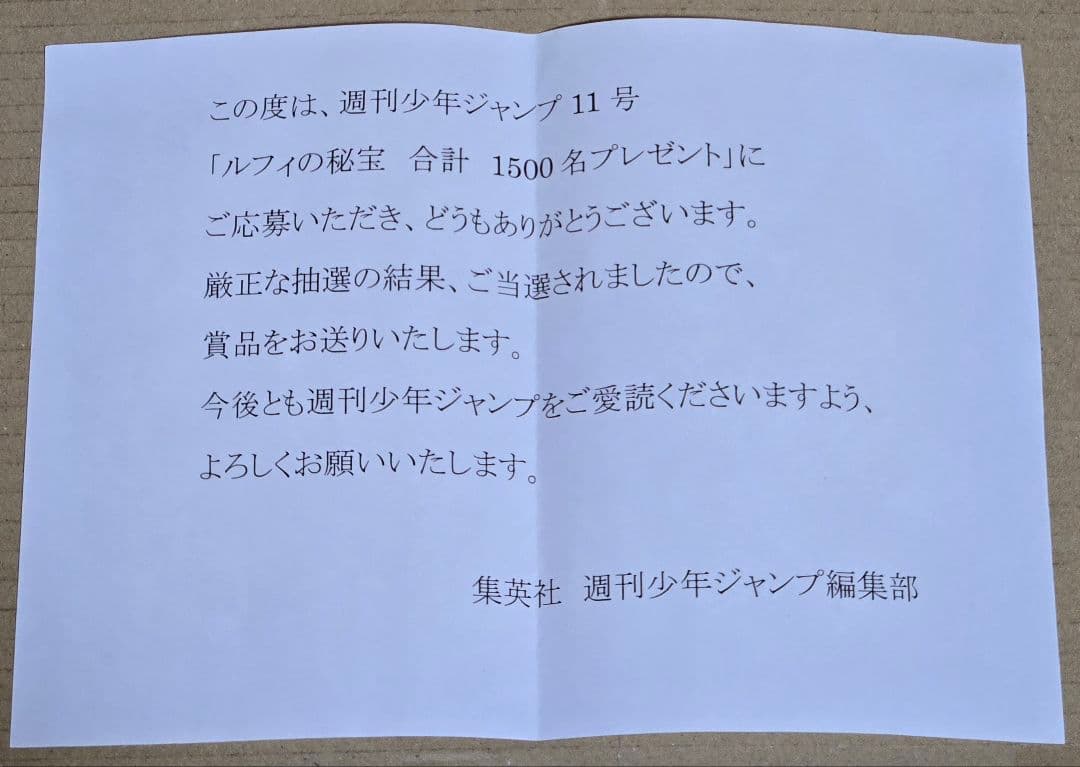 この度は、週刊少年ジャンプ 11 号
「ルフィの秘宝 合計 1500 名プレゼント」に
ご応募いただき、どうもありがとうございます。
厳正な抽選の結果、ご当選されましたので、
賞品をお送りいたします。
今後とも週刊少年ジャンプをご愛読くださいますよう、
よろしくお願いいたします。
集英社 週刊少年ジャンプ編集部